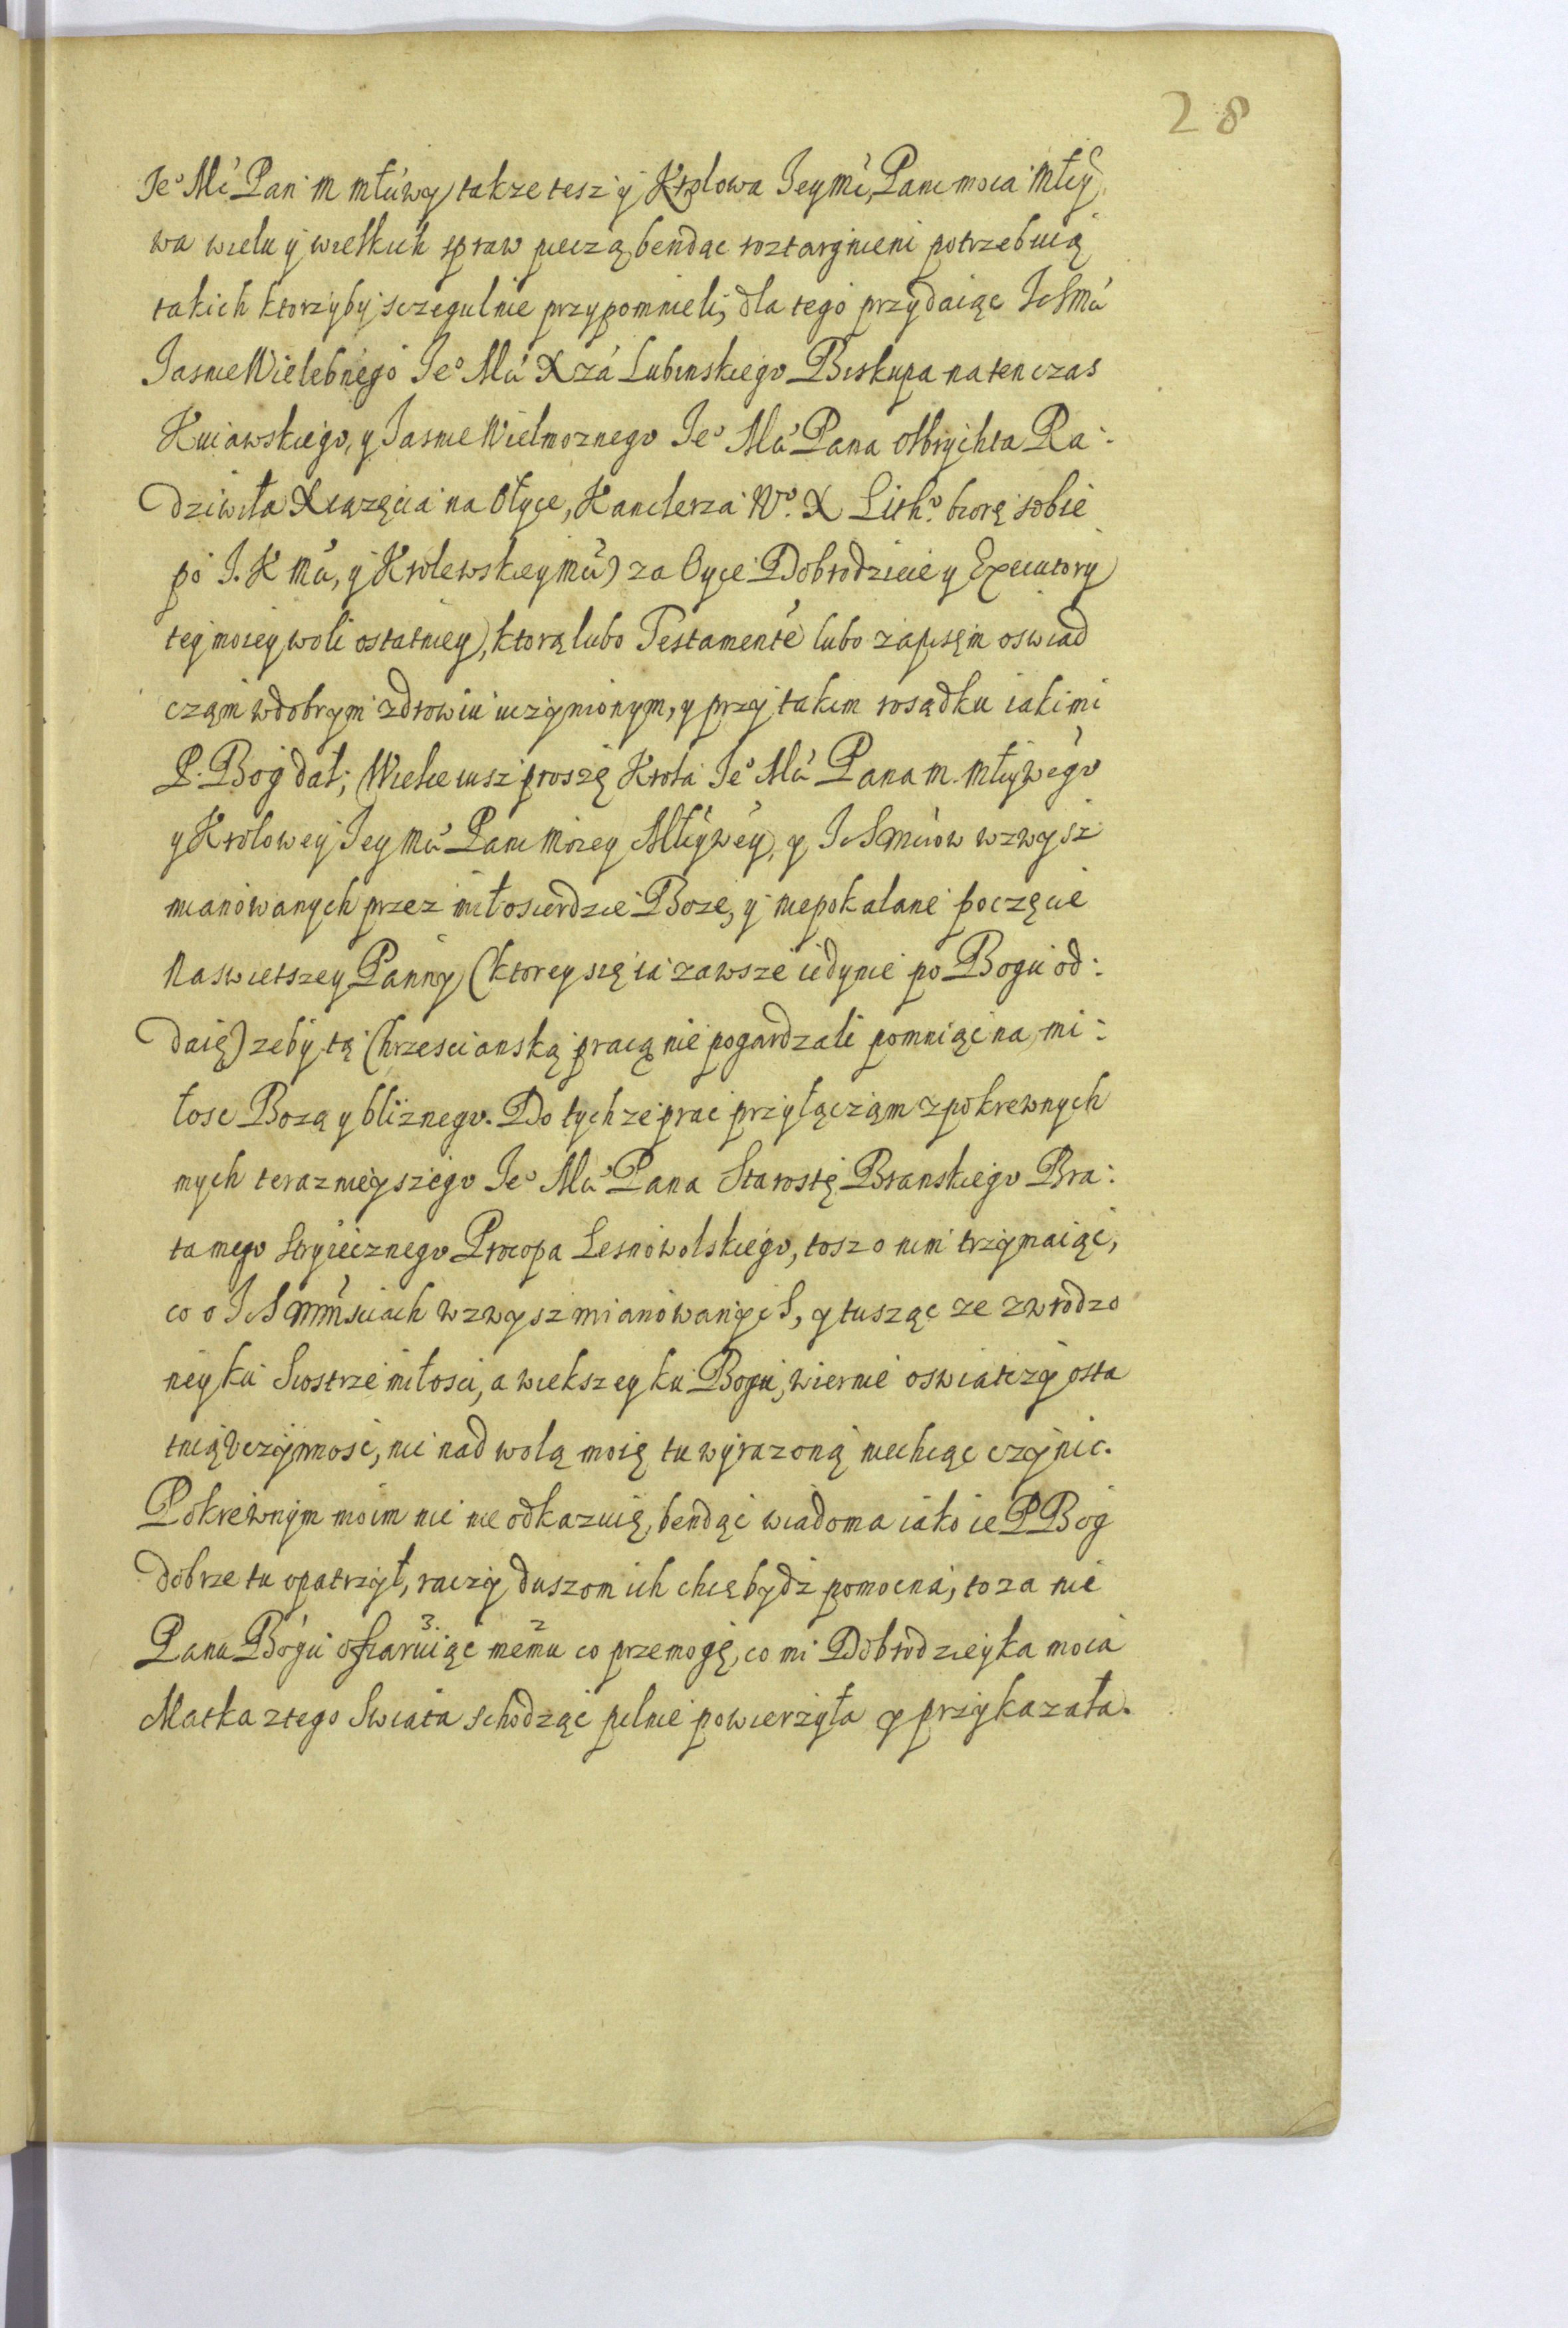 28
Je° Mć Pan m młćiwy takze tesz y Krolowa Jeymć, Pani moia Młćy
wa wielu y wielkich spraw pieczą bendąc roztargnieni potrzebuią
takich ktorzyby sczegulnie przypomnieli, dla tego przydaiąc IchMći
JasnieWielebnego Je° Mći Xzá Lubinskiego Biskupa natenczas
Kuiawskiego, y JasnieWielmoznego Je° Mći Pana Olbrychta Ra:
dziwiła Xiązęcia na Ołyce, Kanclerza W° X Lith° biorę sobie
po J. K Mći, y Krolewskiey Mći) za Oyce Dobrodzieie y Executory
tey moiey woli ostatniey), ktorą lubo Testamentē lubo zapisęm oswiad
cząm wdobrym zdrowiu uczynionym, y przy takim rosądku iaki mi
P. Bog dał; Wielce iusz proszę Krola Je° Mći Pana m. Młćiwego
y Krolowey Jey Mći Pani Moiey Młćywéy, y IchMćiow wzwysz
mianowanych przez miłosierdzie Boze, y niepokalane poczęcie
Naswietszey Panny (ktorey się ia zawsze iedynie po Bogu od:
daię) zeby tą Chrzescianską pracą nie pogardzali pomniąc na mi:
łosc Bozą y bliznego. Do tychze prac przyłącząm zpokrewnych
mych terazneyszego Je° Mći Pana Starostę Branskiego Bra:
ta mego Stryiecznego Procopa Lesniowolskiego, tosz o nim trzymaiąc,
co o Ich Mmściach wzwysz mianowanych, y tusząc ze zwrodzo
ney ku Siostrze miłosci, a wiekszey ku Bogu, wiernie oswiatczy osta
tnią Uczynnosc, nic nad wolą moię tu wyrazoną niechcąc czynic.
Pokrewnym moim nic nie odkazuię, bendąc wiadoma iako ie P Bog
dobrze tu opatrzył, raczy duszom ich chcę bydz pomocna, to za nie
Panu Bogu ofiaruiąc 3. memu 2 co przemogę, co mi Dobrodzieyka moia
Matka z tego Swiata schodząc pilnie powierzyła y przykazała.